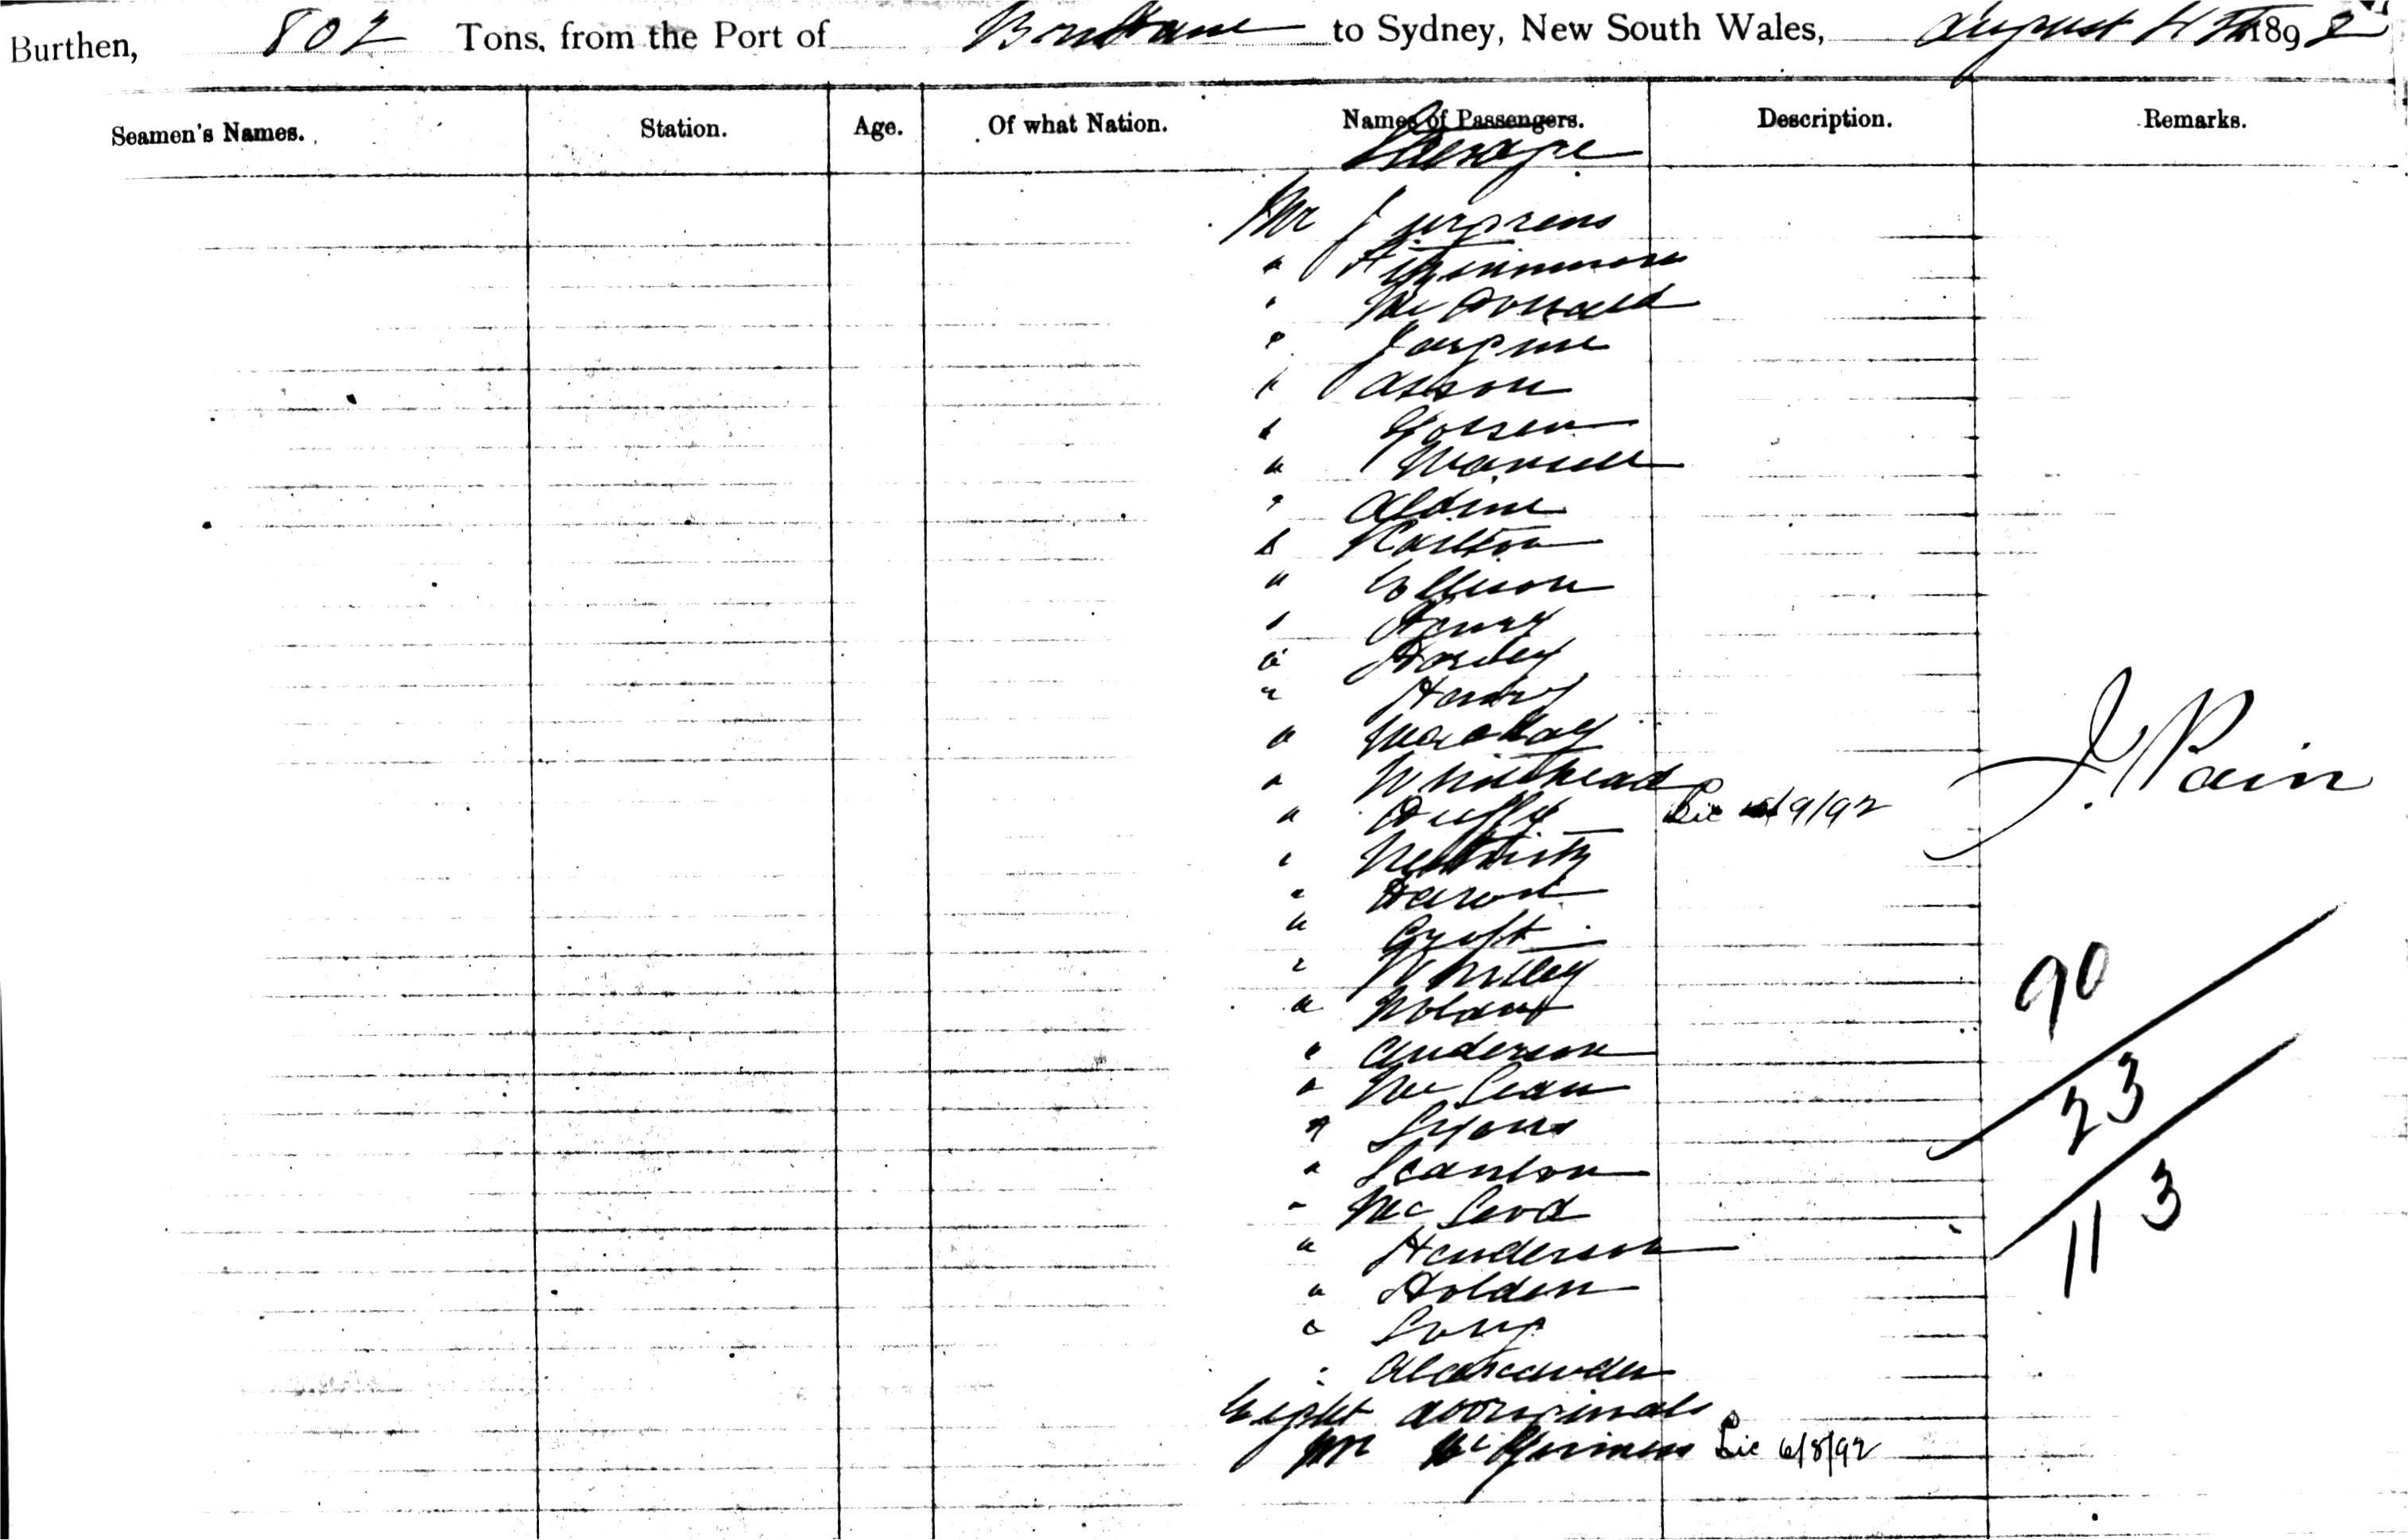 Burthen, 802 Tons, from the Port of Brisbane to Sydney, New South Wales, August 4th 1892
Seamen's Names. Station. Age. Of what Nation. Names of Passengers. Description. Remarks.
Steerage
Mr Jurgens
" Fitzsimmons
" McDonald
" 
" 
" 
" Mansell
" Aldine
" Carlton
" Ellison
" Henry
" Hanley
" Henry
" Mackay
" Whitehead
" Duffy Lic 9/92
J. Pain
" 
" 
" Croft
" Whitley
" 
90
" Anderson
" McLean
" Lyons
23
" Scanlon
" McLeod
" Henderson
113
" Holden
" Long
" Alexander
Eight aboriginals
Mr McGuiness Lic 6/8/92